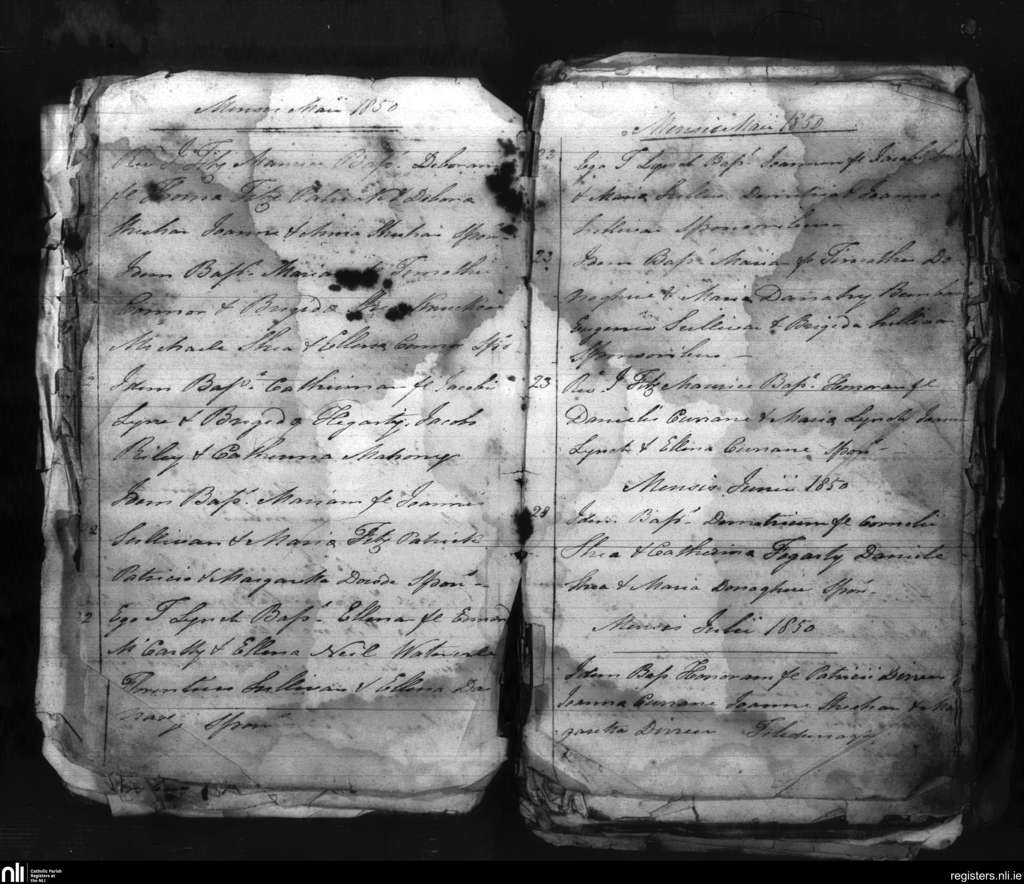 Mensis Maii 1850
Rev. J Fitz Maurice Bapt. Deboram
fl Thoma Fitz Patrick & Debora
Sheehan Joanne & Anna Sheehan Spon
Idem Bapt. Maria Timothei
Connor & Brigida
Michaele Shea & Ellena Connor Spo
Idem Bapt. Catherinam fl Jacobi
Lyne & Brigida Hegarty Jacobo
Riley & Catherina Mahony
Idem Bapt. Mariam fl Joannis
2 Sullivan & Maria Fitz Patrick
Patricio & Margaretta Dowde Spon
2 Ego T Lynch Bapt. Ellena fl Edmond
McCarthy & Ellena Neil Waterville
Florentius Sullivan & Ellena Da
Spon
Mensis Maii 1850
23 Ego T Lynch Bapt. Joannem fl Jacobi
& Maria Sullivan Joanna
Sullivan Sponsoribus
23 Idem Bapt. Maria fl Timothei Do
noghue & Maria
Eugenio Sullivan & Brigida Sullivan
Sponsoribus
23 Rev. J Fitz Maurice Bapt. Honoram fl
Danielis Currane & Maria Lynch
Lynch & Ellena Currane Spon
Mensis Junii 1850
28 Idem Bapt. Demetrium fl Cornelii
Shea & Catherina Fogarty Daniele
Shea & Maria Donoghue Spon
Mensis Julii 1850
Idem Bapt Honoram fl Patricii Dirreen
Joanna Currane Joanne Sheehan & Ma
garetta Dirreen
nli
Catholic Parish
Registers at
the NLI
registers.nli.ie